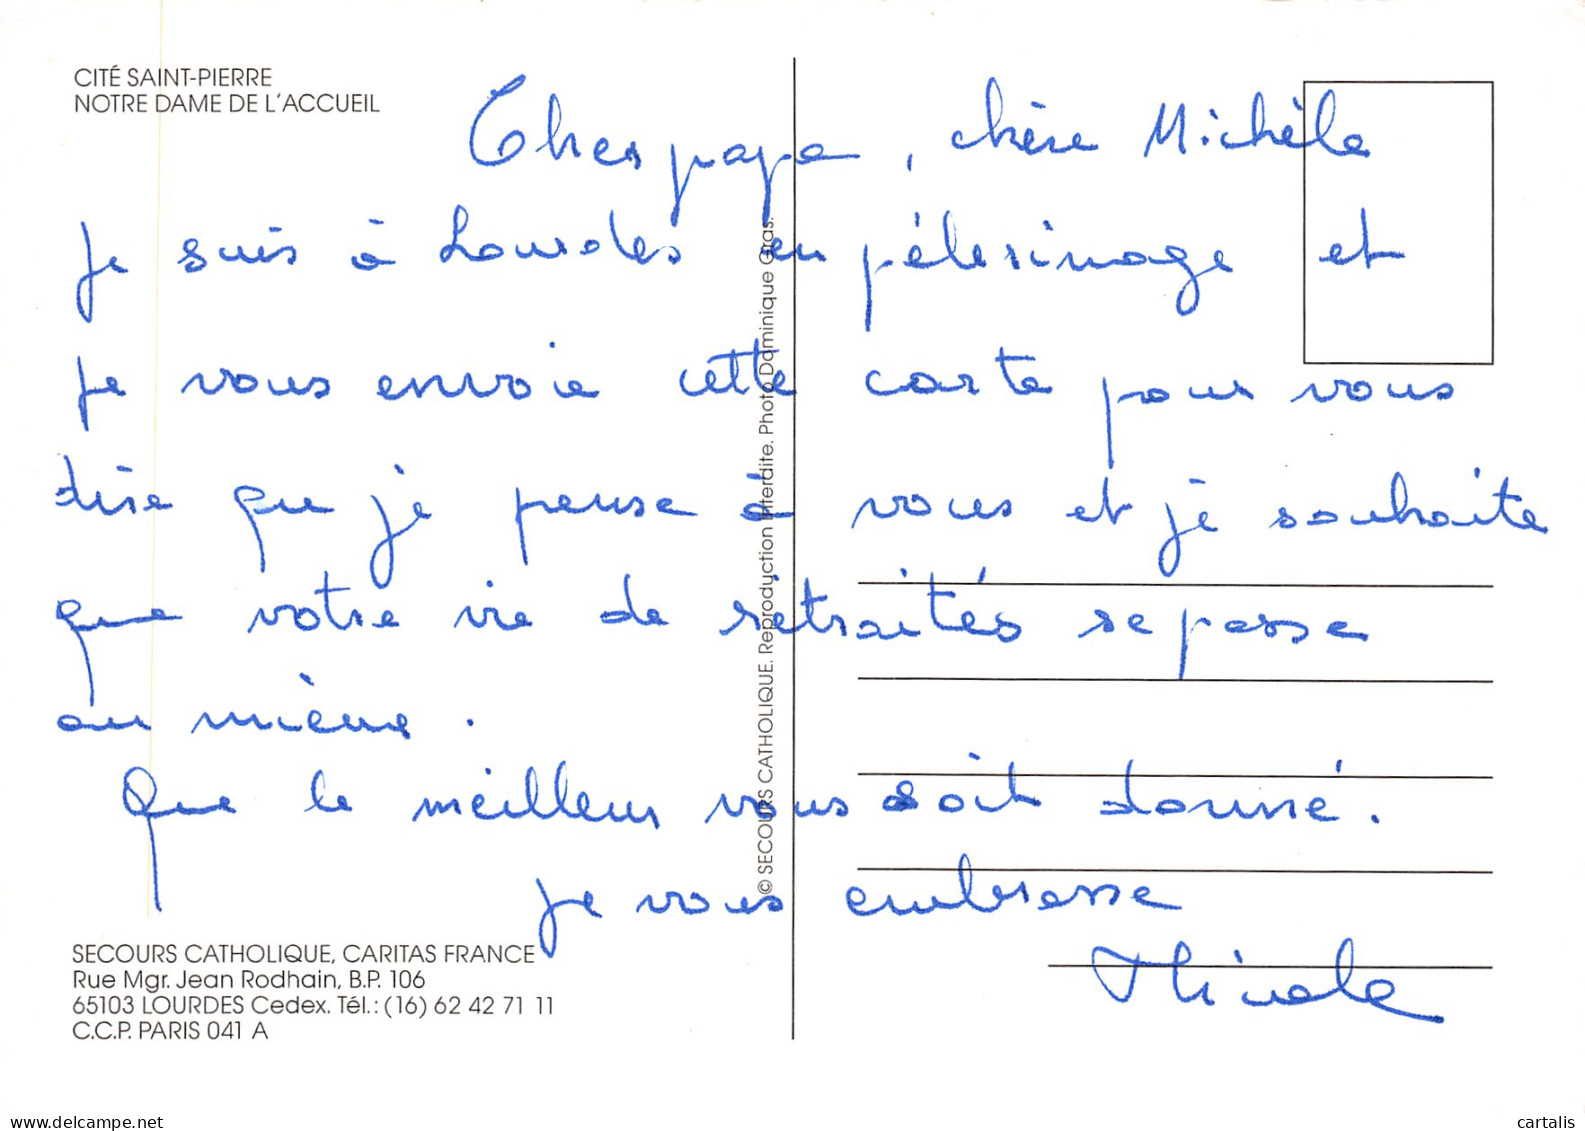 CITÉ SAINT-PIERRE
NOTRE DAME DE L'ACCUEIL
Cher papa, chère Michèle
Je suis à Lourdes en pélerinage et
je vous envoie cette carte pour vous
dire que je pense à vous et je souhaite
que votre vie de retraités se passe
au mieux.
Que le meilleur vous soit donné.
Je vous embrasse
Nicole
© SECOURS CATHOLIQUE. Reproduction interdite. Photo Dominique Gras.
SECOURS CATHOLIQUE, CARITAS FRANCE
Rue Mgr. Jean Rodhain, B.P. 106
65103 LOURDES Cedex. Tél.: (16) 62 42 71 11
C.C.P. PARIS 041 A
delcampe.net
cartalis